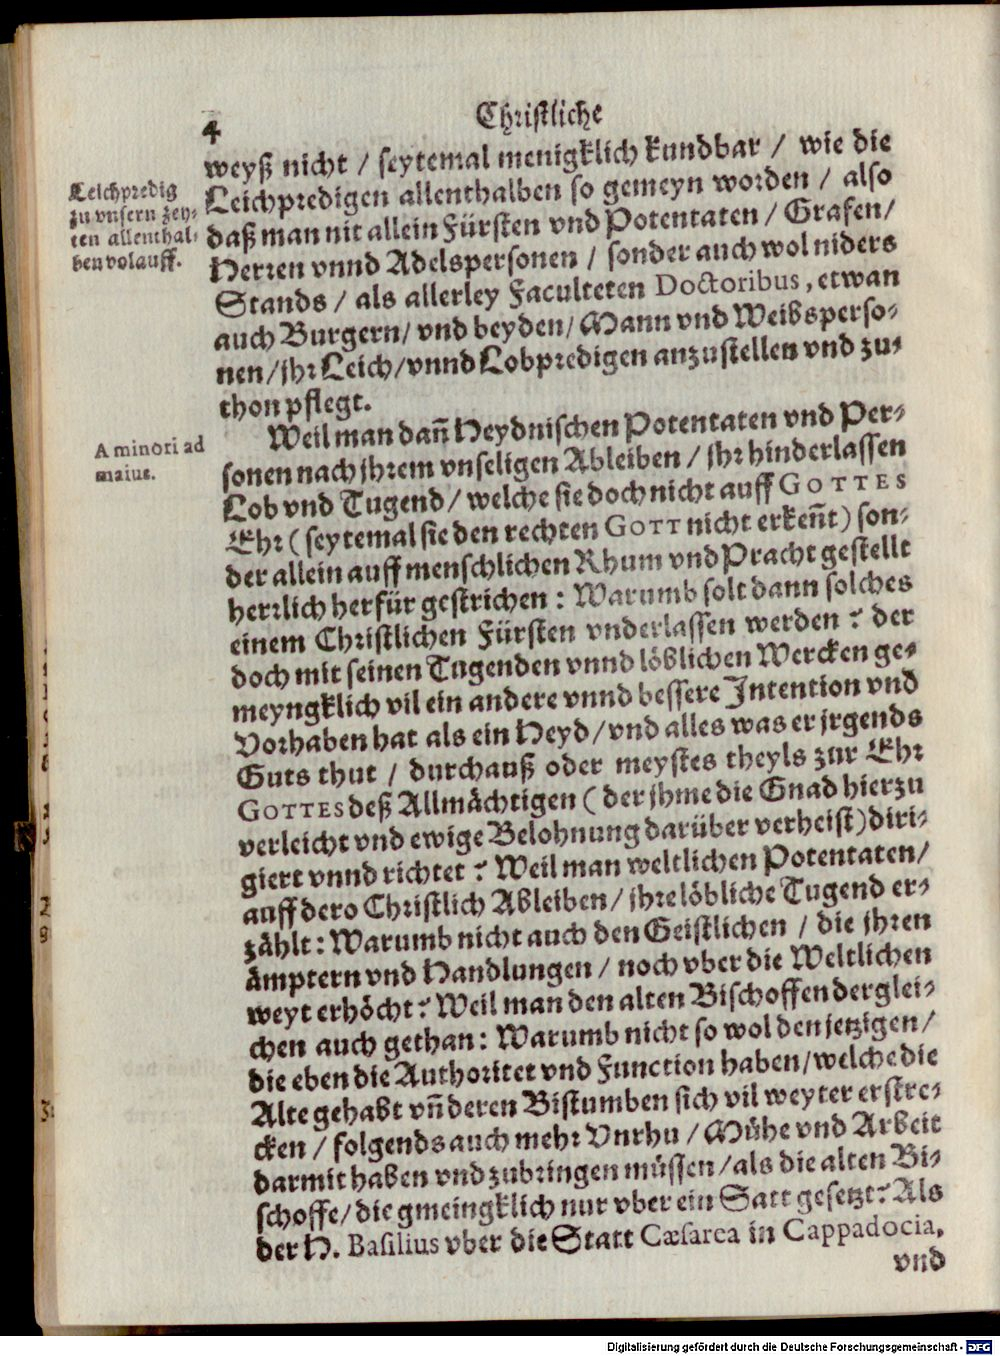 4
Christliche
weyß nicht / seytemal menigklich kundbar / wie die
Leichpredigen allenthalben so gemeyn worden / also
daß man nit allein Fürsten vnd Potentaten / Grafen /
Herren vnnd Adelspersonen / sonder auch wol niders
Stands / als allerley Faculteten Doctoribus, etwan
auch Burgern / vnd beyden / Mann vnd Weibsperso-
nen / jhr Leich / vnnd Lobpredigen anzustellen vnd zu-
thon pflegt.
Leichpredig
zu vnsern zey-
ten allenthal-
ben volauff.
Weil man dañ Heydnischen Potentaten vnd Per-
sonen nach jhrem vnseligen Ableiben / jhr hinderlassen
Lob vnd Tugend / welche sie doch nicht auff GOTTES
Ehr ( seytemal sie den rechten GOTT nicht erkeñt ) son-
der allein auff menschlichen Rhum vnd Pracht gestellt
herrlich herfür gestrichen : Warumb solt dann solches
einem Christlichen Fürsten vnderlassen werden ? der
doch mit seinen Tugenden vnnd löblichen Wercken ge-
meyngklich vil ein andere vnnd bessere Intention vnd
Vorhaben hat als ein Heyd / vnd alles was er jrgends
Guts thut / durchauß oder meystes theyls zur Ehr
GOTTES deß Allmächtigen ( der jhme die Gnad hierzu
verleicht vnd ewige Belohnung darüber verheist ) diri-
giert vnnd richtet ? Weil man weltlichen Potentaten /
auff dero Christlich Ableiben / jhre löbliche Tugend er-
zählt : Warumb nicht auch den Geistlichen / die jhren
ämptern vnd Handlungen / noch vber die Weltlichen
weyt erhöcht ? Weil man den alten Bischoffen derglei-
chen auch gethan : Warumb nicht so wol den jetzigen /
die eben die Authoritet vnd Function haben / welche die
Alte gehabt vñ deren Bistumben sich vil weyter erstre-
cken / folgends auch mehr Vnrhu / Mühe vnd Arbeit
darmit haben vnd zubringen müssen / als die alten Bi-
schoffe / die gmeingklich nur vber ein Statt gesetzt ? Als
der H. Basilius vber die Statt Cæsarea in Cappadocia,
vnd
A minori ad
maius.
Digitalisierung gefördert durch die Deutsche Forschungsgemeinschaft - DFG